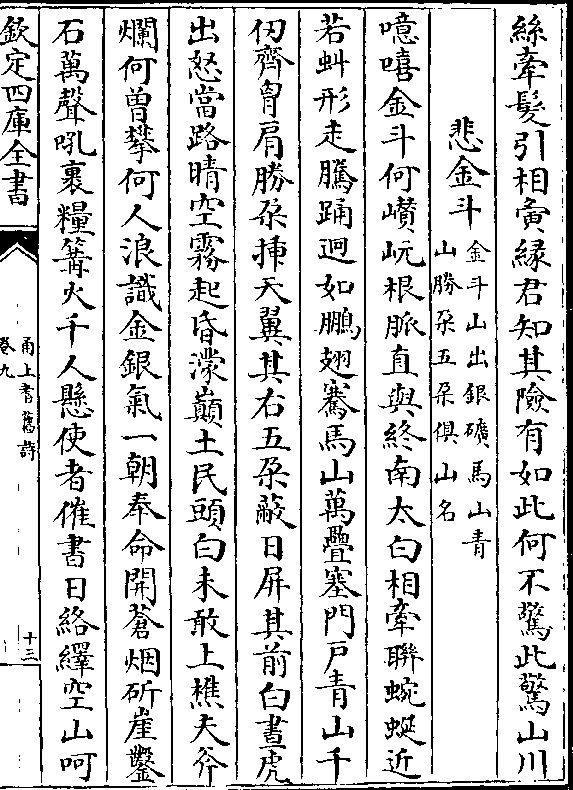 絲牽髮引相夤縁君知其險有如此何不驚此驚山川
悲金斗金斗山出銀礦馬山青
山勝朶五朶俱山名
噫嘻金斗何巑岏根脈直與終南太白相牽聯蜿蜒近
若虯形走騰踊迥如鵬翅騫馬山萬疊塞門戸青山千
仞齊胷肩勝朶揷天翼其右五朶蔽日屏其前白晝虎
出怒當路晴空霧起昏濛巔土民頭白未敢上樵夫斧
爛何曽攀何人浪識金銀氣一朝奉命開蒼烟斫崖鑿
石萬聲吼裹糧篝火千人懸使者催書日絡繹空山呵
欽定四庫全書
甬上耆舊詩
卷九
十三